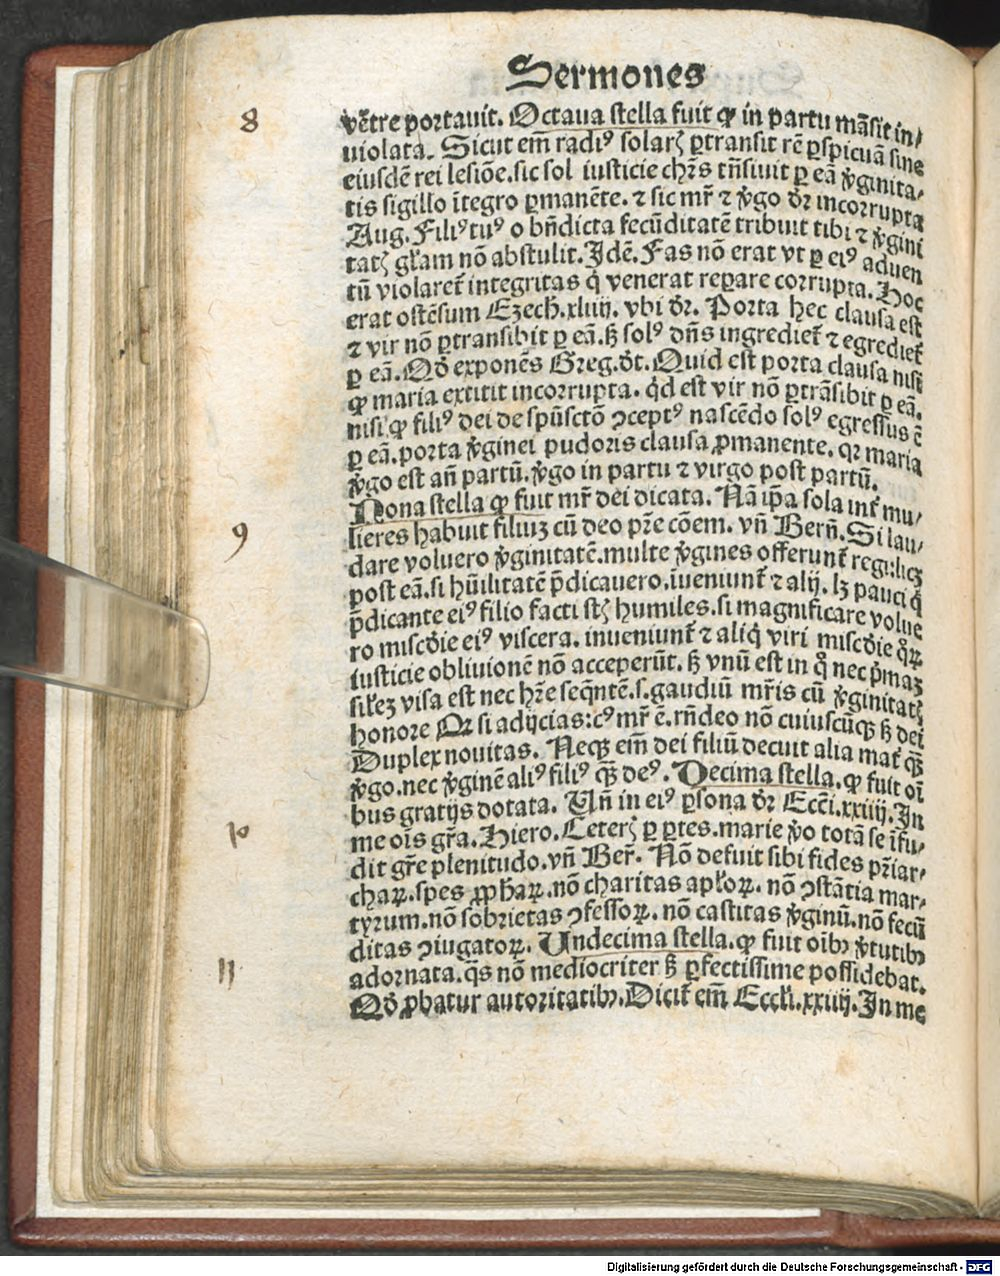 Sermones
8
vẽtre portauit. Octaua stella fuit ꝙ in partu mãsit in/
uiolata. Sicut em̃ radiꝰ solarꝭ ꝑtransit rẽ ꝑspicuã sine
eiusdẽ rei lesiõe. sic sol iusticie chr̃s trãsiuit ꝑ eã v̾ginita/
tis sigillo ĩtegro ꝑmanẽte. ⁊ sic mr̃ ⁊ v̾go dr̃ incorrupta
Aug. Filiꝰ tuꝰ o bñdicta fecũditatẽ tribuit tibi ⁊ v̾gini
tatꝭ gl̃am nõ abstulit. Idẽ. Fas nõ erat vt ꝑ eiꝰ aduen
tũ violaret̃ integritas q̇ venerat reꝑare corrupta. Hoc
erat ostẽsum Ezech. xliiij. vbi dr̃. Porta hec clausa est
⁊ vir nõ ꝑtransibit ꝑ eã. ß solꝰ dñs ingrediet̃ ⁊ egrediet̃
ꝑ eã. Qd̾ exponẽs Greg. dt̃. Quid est porta clausa nisi
ꝙ maria extitit incorrupta. q̇d est vir nõ ꝑtrãsibit ꝑ eã.
nisi ꝙ filiꝰ dei de spũsctõ ↄceptꝰ nascẽdo solꝰ egressus ẽ
ꝑ eã. porta v̾ginei pudoris clausa ꝑmanente. qꝛ maria
v̾go est añ partũ. v̾go in partu ⁊ virgo post partũ.
9
Nona stella ꝙ fuit mr̃ dei dicata. Nã ip̃a sola int̃ mu/
lieres habuit filiuꝫ cũ deo pr̃e cõem. vñ Berñ. Si lau/
dare voluero v̾ginitatẽ. multe v̾gines offerunt̃ regi: licꝫ
post eã. si hũilitatẽ p̃dicauero. ĩueniunt̃ ⁊ alij. lꝫ pauci q̇
p̃dicante eiꝰ filio facti st̃ humiles. si magnificare volue
ro misc̾die eiꝰ viscera. inueniunt̃ ⁊ aliq̇ viri misc̾die q̊ꝝ
iusticie obliuionẽ nõ acceperũt. ß vnũ est in q̊ nec p̃maꝫ
sil̃eꝫ visa est nec hr̃e seq̃ntẽ. s. gaudiũ mr̃is cũ v̾ginitatꝭ
honore Qꝛ si adijcias: cꝰ mr̃ ẽ. rñdeo nõ cuiuscũqꝫ ß dei
Duplex nouitas. Necqꝫ em̃ dei filiũ decuit alia mat̃ qꝫ̃
v̾go. nec v̾ginẽ aliꝰ filiꝰ qꝫ̃ deꝰ. Decima stella. ꝙ fuit oĩ
bus gratijs dotata. Vñ in eiꝰ ꝑsona dr̃ Ecc̃i. xxiiij. In
10
me oĩs gr̃a. Hiero. Ceterꝭ ꝑ ꝑtes. marie v̾o totã se ĩfu/
dit gr̃e plenitudo. vñ Ber̃. Nõ defuit sibi fides pr̃iar/
chaꝝ. spes ꝓph̃aꝝ. nõ charitas apl̃oꝝ. nõ ↄstãtia mar/
tyrum. nõ sobrietas ↄfessoꝝ. nõ castitas v̾ginũ. nõ fecũ
ditas ↄiugatoꝝ. Undecima stella. ꝙ fuit oĩbꝫ v̾tutibꝫ
11
adornata. q̃s nõ mediocriter ß ꝑfectissime possidebat.
Qd̾ ꝓbatur autoritatibꝫ. Dicit̃ em̃ Eccl̃i. xxiiij. In me
Digitalisierung gefördert durch die Deutsche Forschungsgemeinschaft - DFG